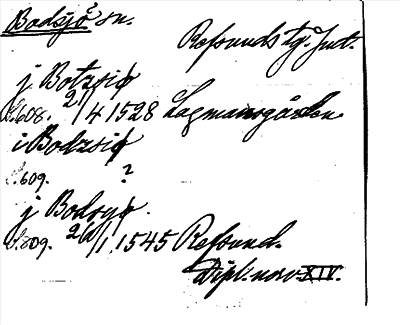 Bodsjö sn.
Refsunds tg. Jmt.
j Botzsiø
S. 608. 2/4 1528 Lagmansgården
i Bodzsiø
S. 609. ?
j Bodsyø.
S. 809. 1545 Refsund.
Dipl. nov. XIV.